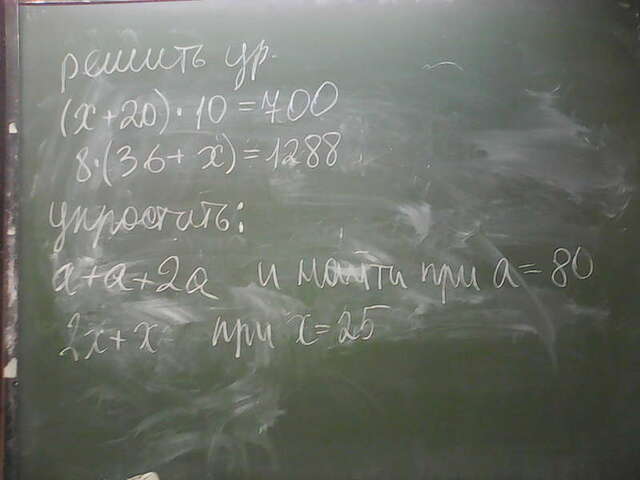 решить ур.
(x+20)·10=700
8·(36+x)=1288
упростить:
a+a+2a и найти при a=80
2x+x при x=25